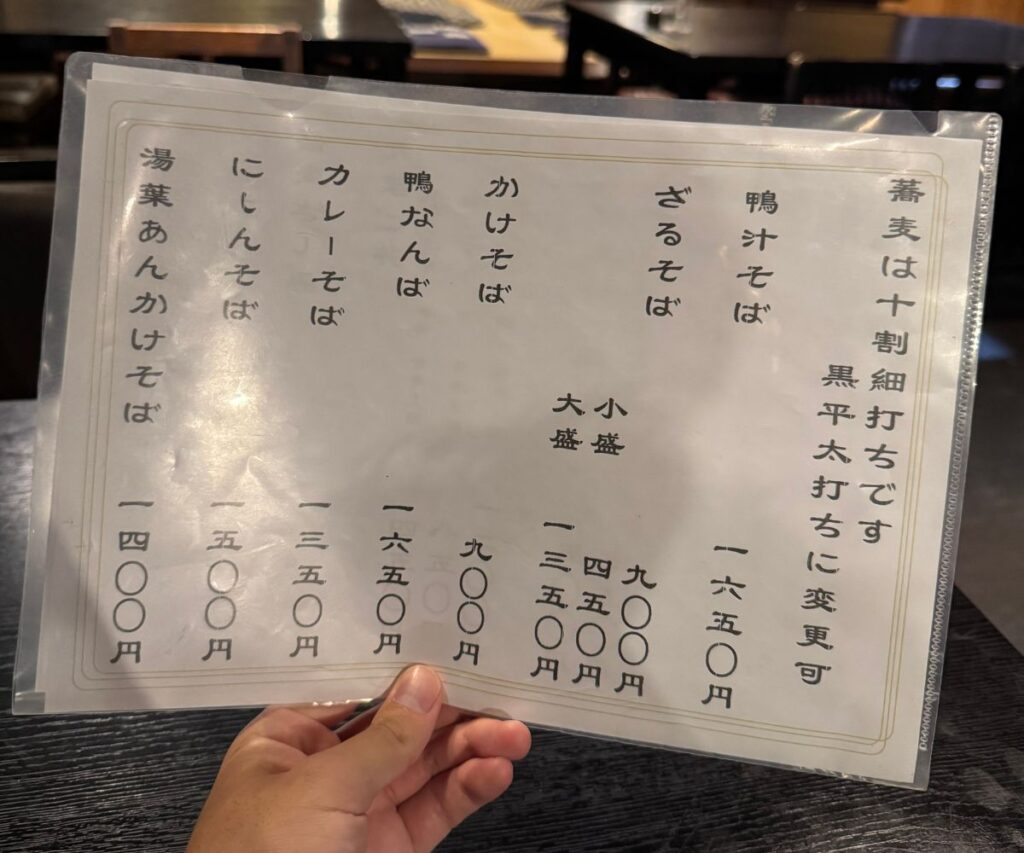 蕎麦は十割細打ちです
黒平太打ちに変更可
鴨汁そば 一六五〇円
ざるそば 九〇〇円
小盛 四五〇円
大盛 一三五〇円
かけそば 九〇〇円
鴨なんば 一六五〇円
カレーそば 一三五〇円
にしんそば 一五〇〇円
湯葉あんかけそば 一四〇〇円